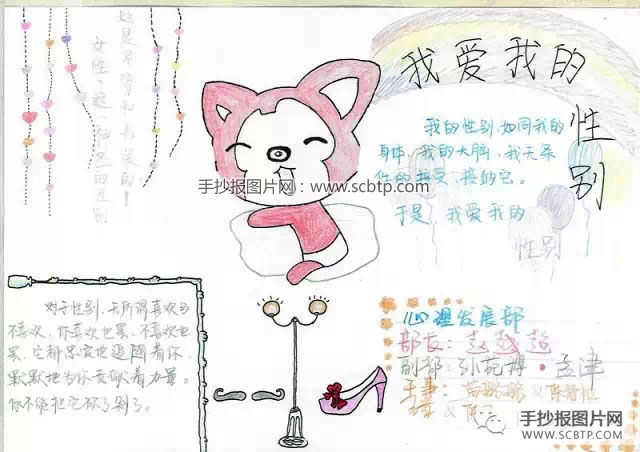 我爱我的
性别
她是不曾和我爱的！
女性，这一种是的性别
我的性别，如同我的
身体，我的大脑，我无条
件的接受、接纳它。
于是，我爱我的
性别
手抄报图片网：www.scbtp.com
对于性别，无所谓喜欢与
不喜欢，你喜欢也罢，不喜欢也
罢，它都忠实地追随着你，
默默地为你贡献着力量。
你不能把它砍了剁了。
心理发展部
部长：赵越超
副部：孙婉婷 孟津
干事：
手抄报图片网
WWW.SCBTP.COM